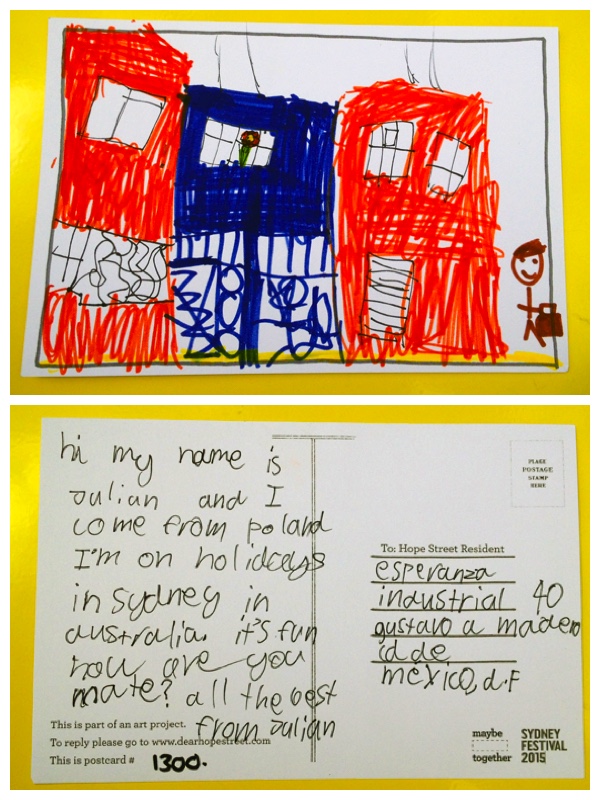 hi my name is
Julian and I
come from poland
I'm on holidays
in sydney in
australia. it's fun
how are you
mate? all the best
from Julian
This is part of an art project.
To reply please go to www.dearhopestreet.com
This is postcard # 1300.
PLACE
POSTAGE
STAMP
HERE
To: Hope Street Resident
esperanza
industrial 40
gustavo a madero
cd de
méxico, d.f
maybe
together
SYDNEY
FESTIVAL
2015